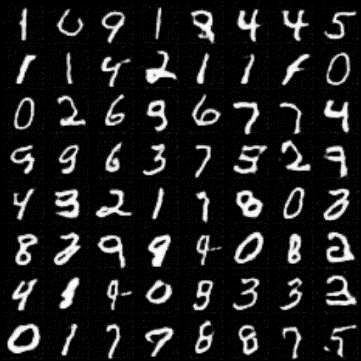 1 0 9 1 9 4 4 5
1 1 4 2 1 1 1 0
0 2 6 9 6 7 7 4
9 9 6 3 7 5 2 9
4 3 2 1 1 8 0 2
8 2 9 9 4 0 8 2
4 1 4 0 9 3 3 2
0 1 7 7 8 8 7 5